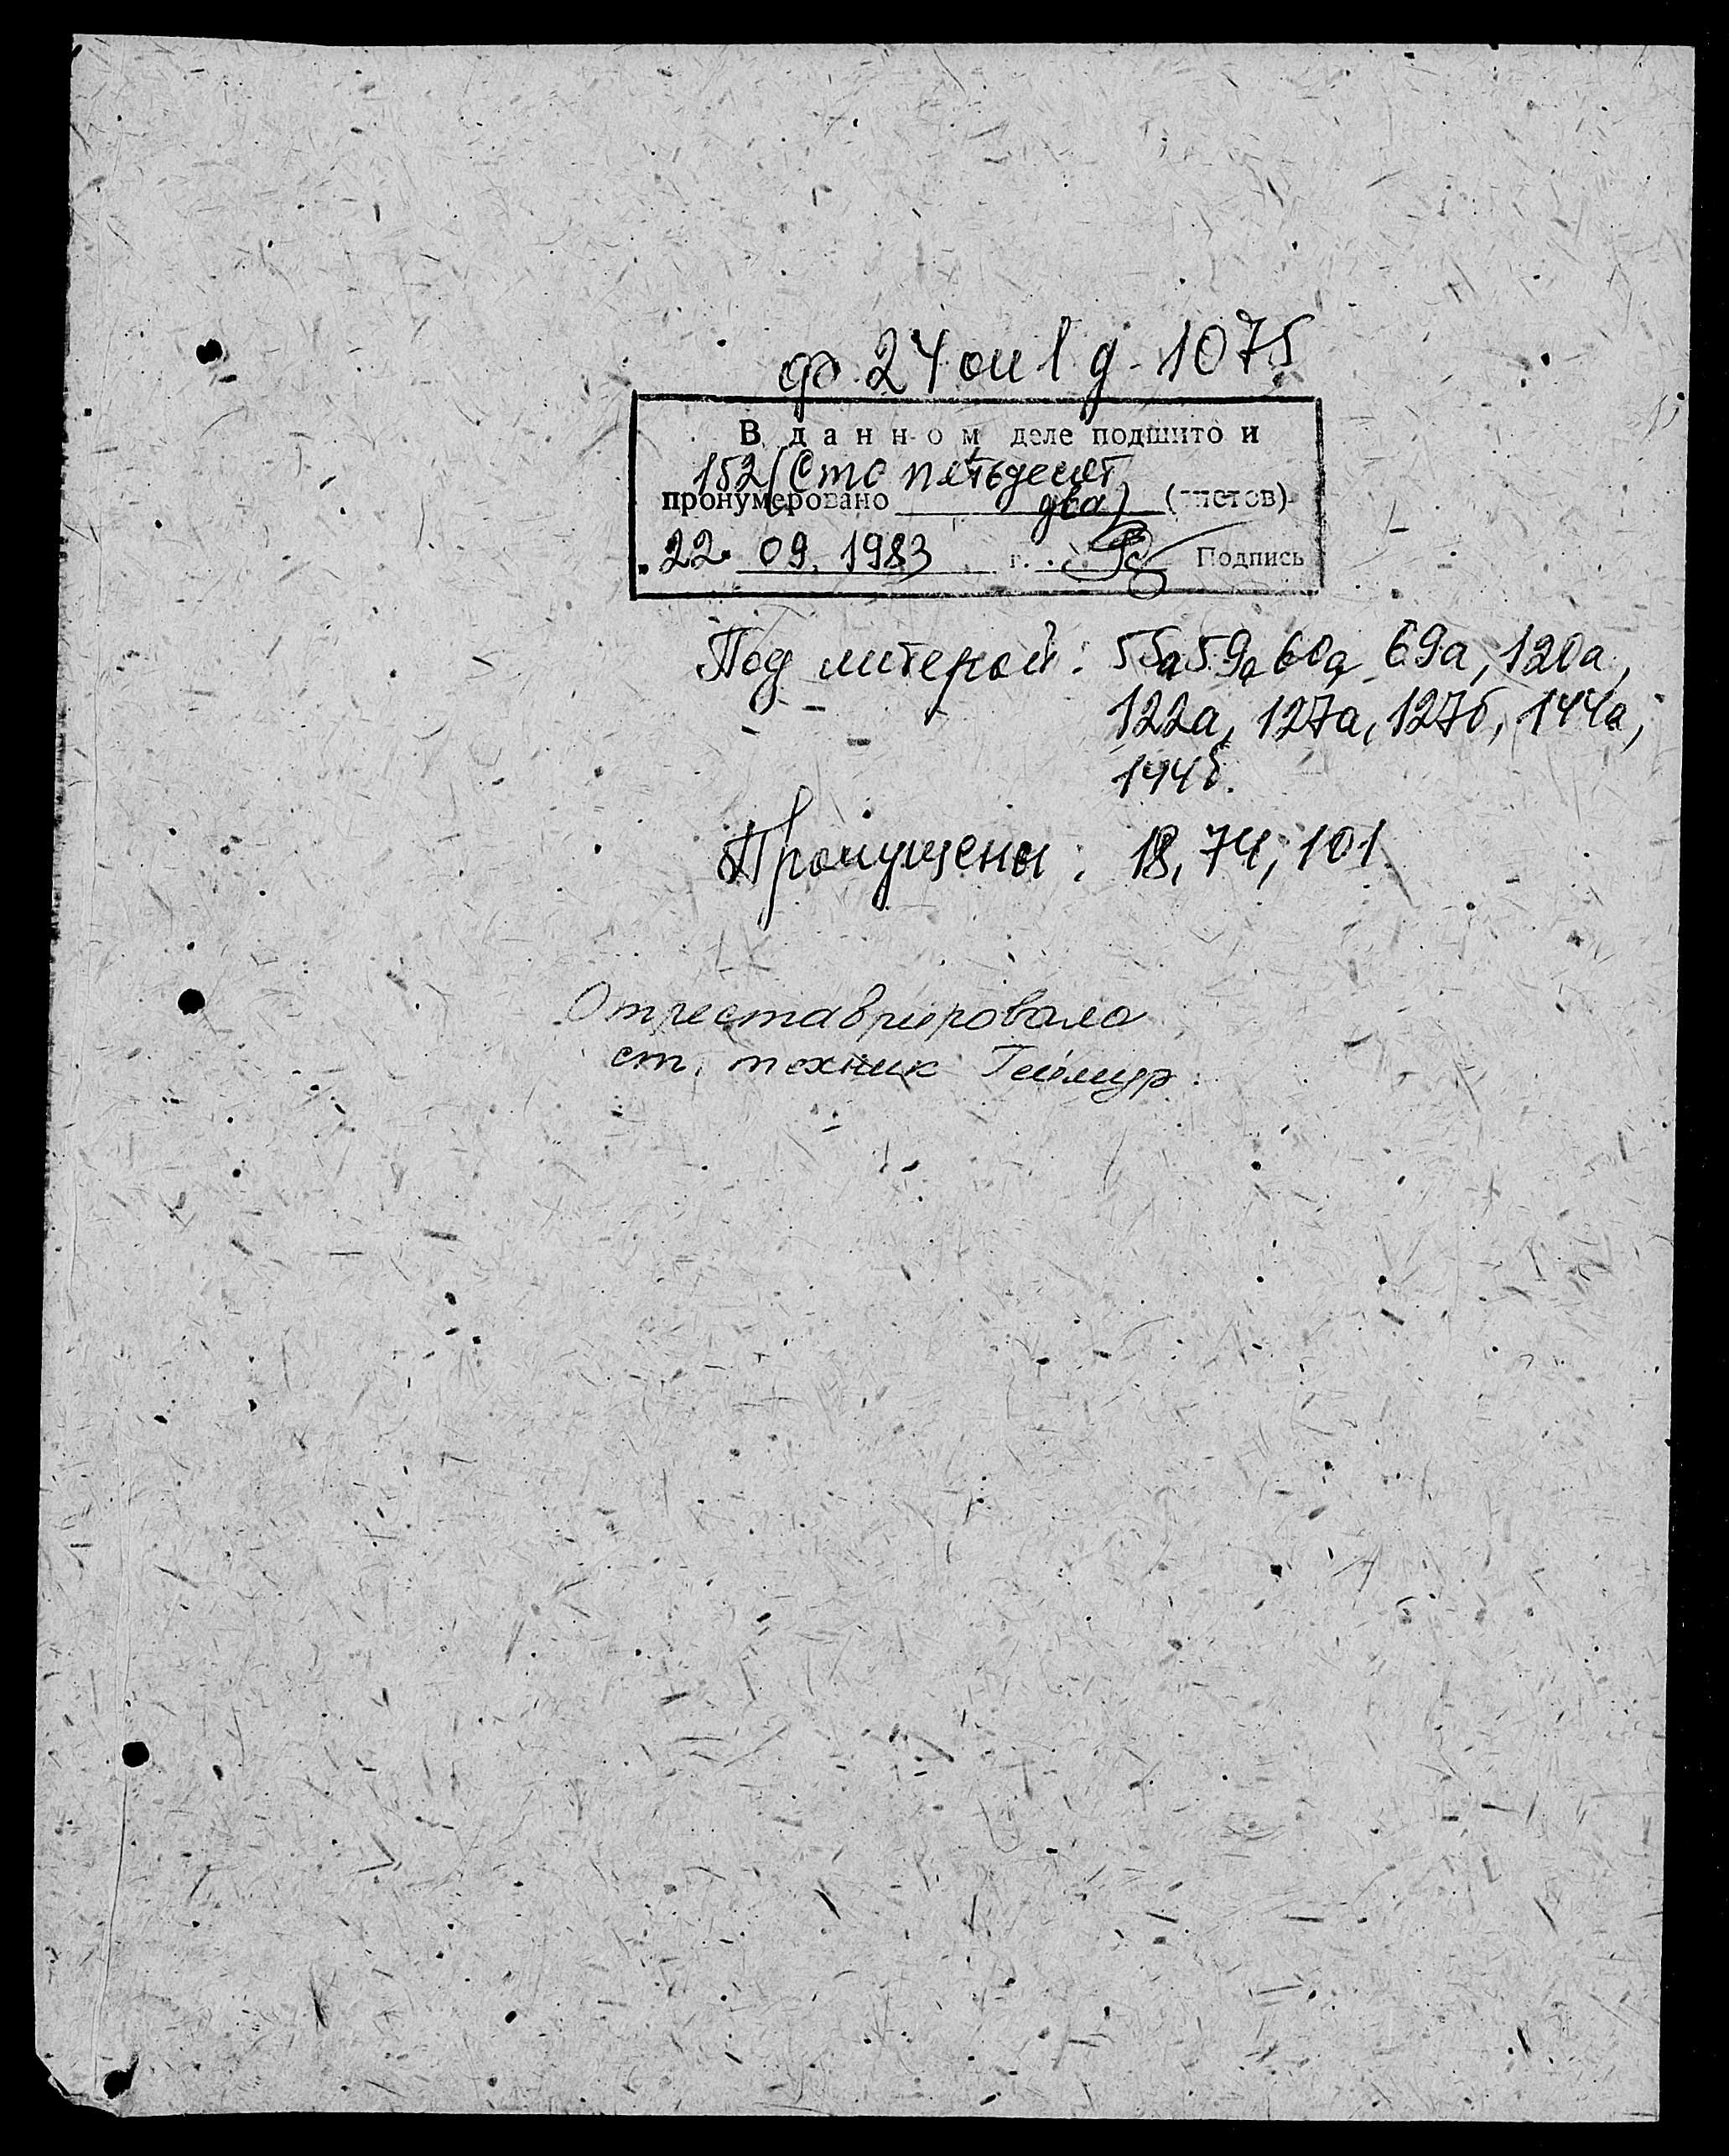 ф. 24 оп 1 д. 1075
В данном деле подшито и
152 (Сто пятьдесят
пронумеровано два) (листов)
22. 09. 1983 г. Подпись
Под литерой: 55а 59а 60а 69а, 120а,
122а, 127а, 127б, 144а,
144б.
Пропущены: 18, 74, 101
Отреставрировала
ст. техник